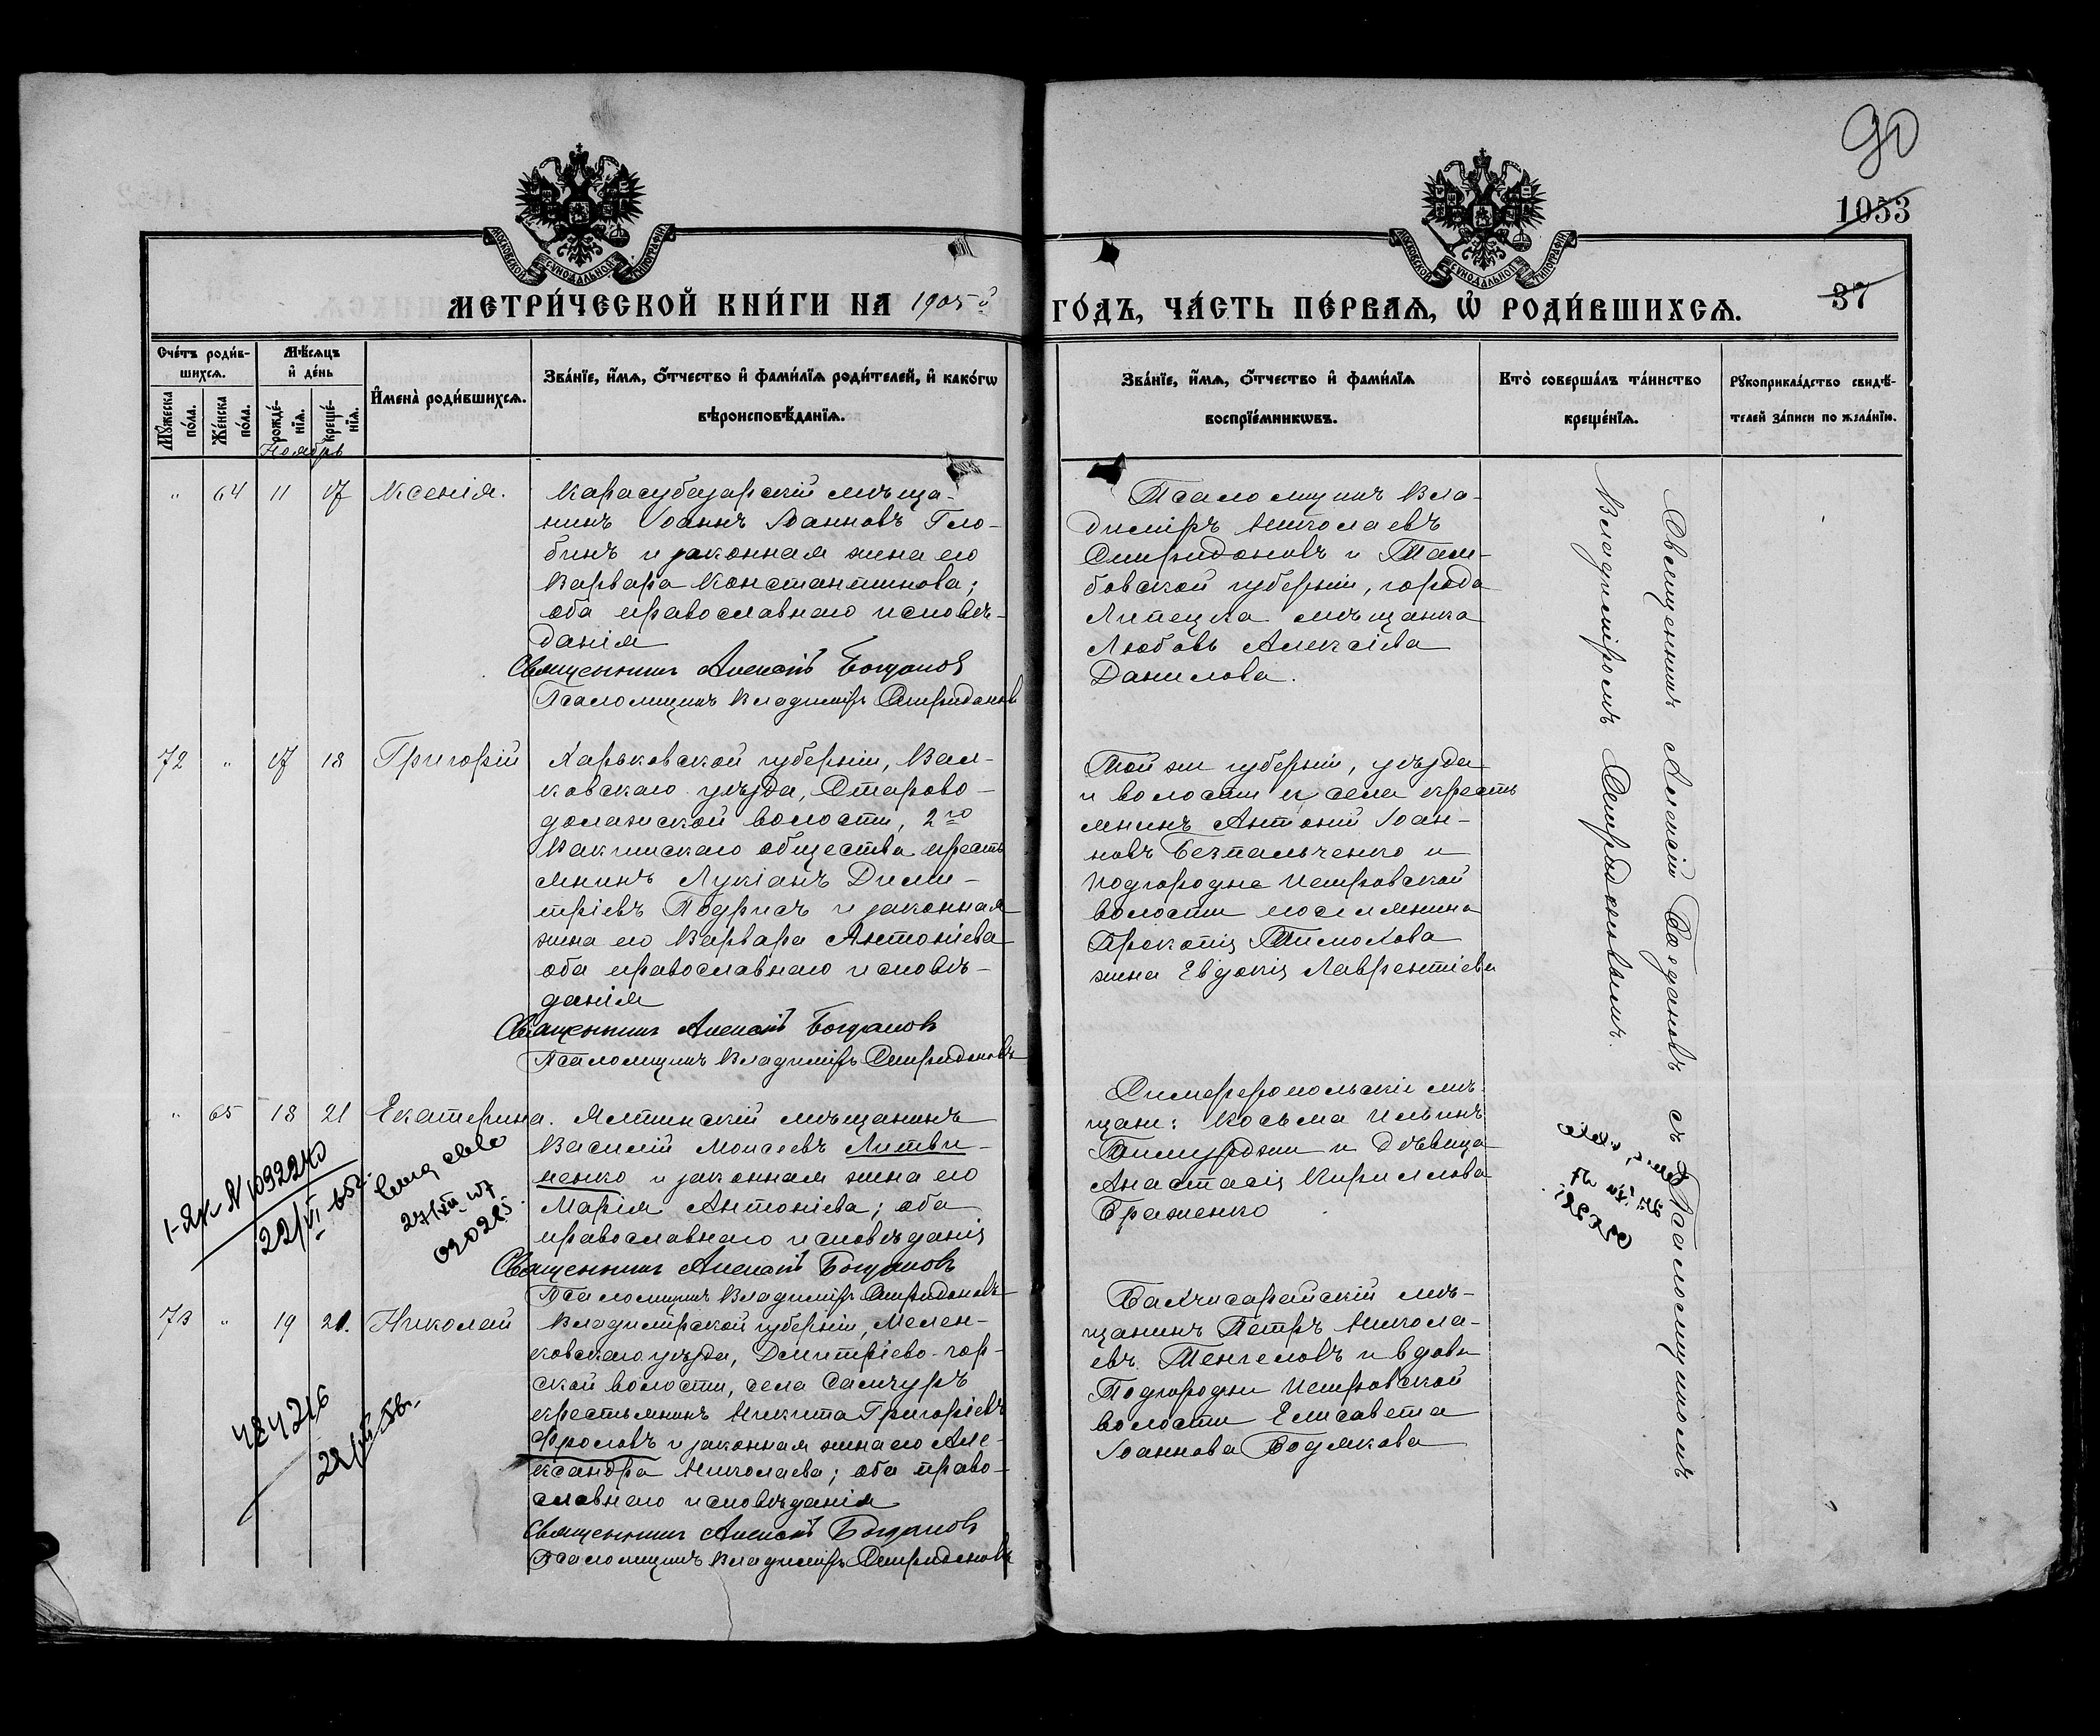 90
1053
37
МОСКОВСКОЙ СУНОДАЛЬНОЙ ТИПОГРАФІИ
МОСКОВСКОЙ СУНОДАЛЬНОЙ ТИПОГРАФІИ
МЕТРИ́ЧЕСКОЙ КНИ́ГИ НА 1905й ГО́ДЪ, ЧА́СТЬ ПЕ́РВАѦ, Ѡ҆ РОДИ́ВШИХСѦ.
Сче́тъ роди́в-
шихсѧ.
Мꙋ́жеска по́ла.
Же́нска по́ла.
Мѣ́сѧцъ и҆ де́нь
рожде́-
нїѧ.
креще́-
нїѧ.
Ноябрь
И҆мена̀ роди́вшихсѧ.
Зва́нїе, и҆́мѧ, ѻ҆́тчество и҆ фами́лїѧ роди́телей, и҆ како́гѡ
вѣроисповѣ́данїѧ.
Зва́нїе, и҆́мѧ, ѻ҆́тчество и҆ фами́лїѧ
воспрїе́мникѡвъ.
Кто̀ соверша́лъ та́инство
креще́нїѧ.
Рꙋкоприкла́дство свидѣ́-
телей за́писи по жела́нїю.
" 64 11 17 Ксенія.
Карасубазарскій мѣща-
нинъ Іоаннъ Іоанновъ Гло-
бинъ и законная жена его
Варвара Константинова;
оба православнаго исповѣ-
данія
Священникъ Алексій Богданов
Псаломщикъ Владиміръ Спиридонов
Псаломщикъ Вла-
диміръ Николаевъ
Спиридоновъ и Там-
бовской губерніи, города
Липецка мѣщанка
Любовь Алексіева
Данилова.
72 " 17 18 Григорій
Харьковской губерніи, Вал-
ковскаго уѣзда, Старово-
долажской волости, 2го
Вакинскаго общества кресть
янинъ Лукіанъ Дими-
тріевъ Подрисъ и законная
жена его Варвара Антоніева
оба православнаго исповѣ-
данія
Священникъ Алексій Богданов
Псаломщикъ Владиміръ Спиридоновъ
Той же губерніи, уѣзда
и волости и села кресть
янинъ Антоній Іоан-
новъ Безпальченко и
Подгородне Петровской
волости поселянина
Прокопія Тимохова
жена Евдокія Лаврентіева
" 65 18 21 Екатерина.
Ялтинскій мѣщанинъ
Василій Моисеевъ Литви-
ненко и законная жена его
Марія Антоніева; оба
православнаго исповѣданія
Священникъ Алексій Богданов
Псаломщикъ Владиміръ Спиридоновъ
Симферопольскіе мѣ-
щане: Косьма Ильинъ
Тимурджи и дѣвица
Анастасія Кириллова
Браженко
22/VI
27/VII
73 " 19 21. Николай
Владимірской губерніи, Мелен-
ковскаго уѣзда, Дмитріево-гор-
ской волости, села Самчуръ
крестьянинъ Никита Григоріевъ
Фроловъ и законная жена его Але-
ксандра Николаева; оба право-
славнаго исповѣданія
Священникъ Алексій Богданов
Псаломщикъ Владиміръ Спиридоновъ
Бахчисарайскій мѣ-
щанинъ Петръ Никола-
евъ Тенгеловъ и вдова
Подгородне Петровской
волости Елисавета
Іоаннова Бодякова
Священникъ Алексій Богдановъ съ Псаломщикомъ
Владиміромъ Спиридоновымъ.